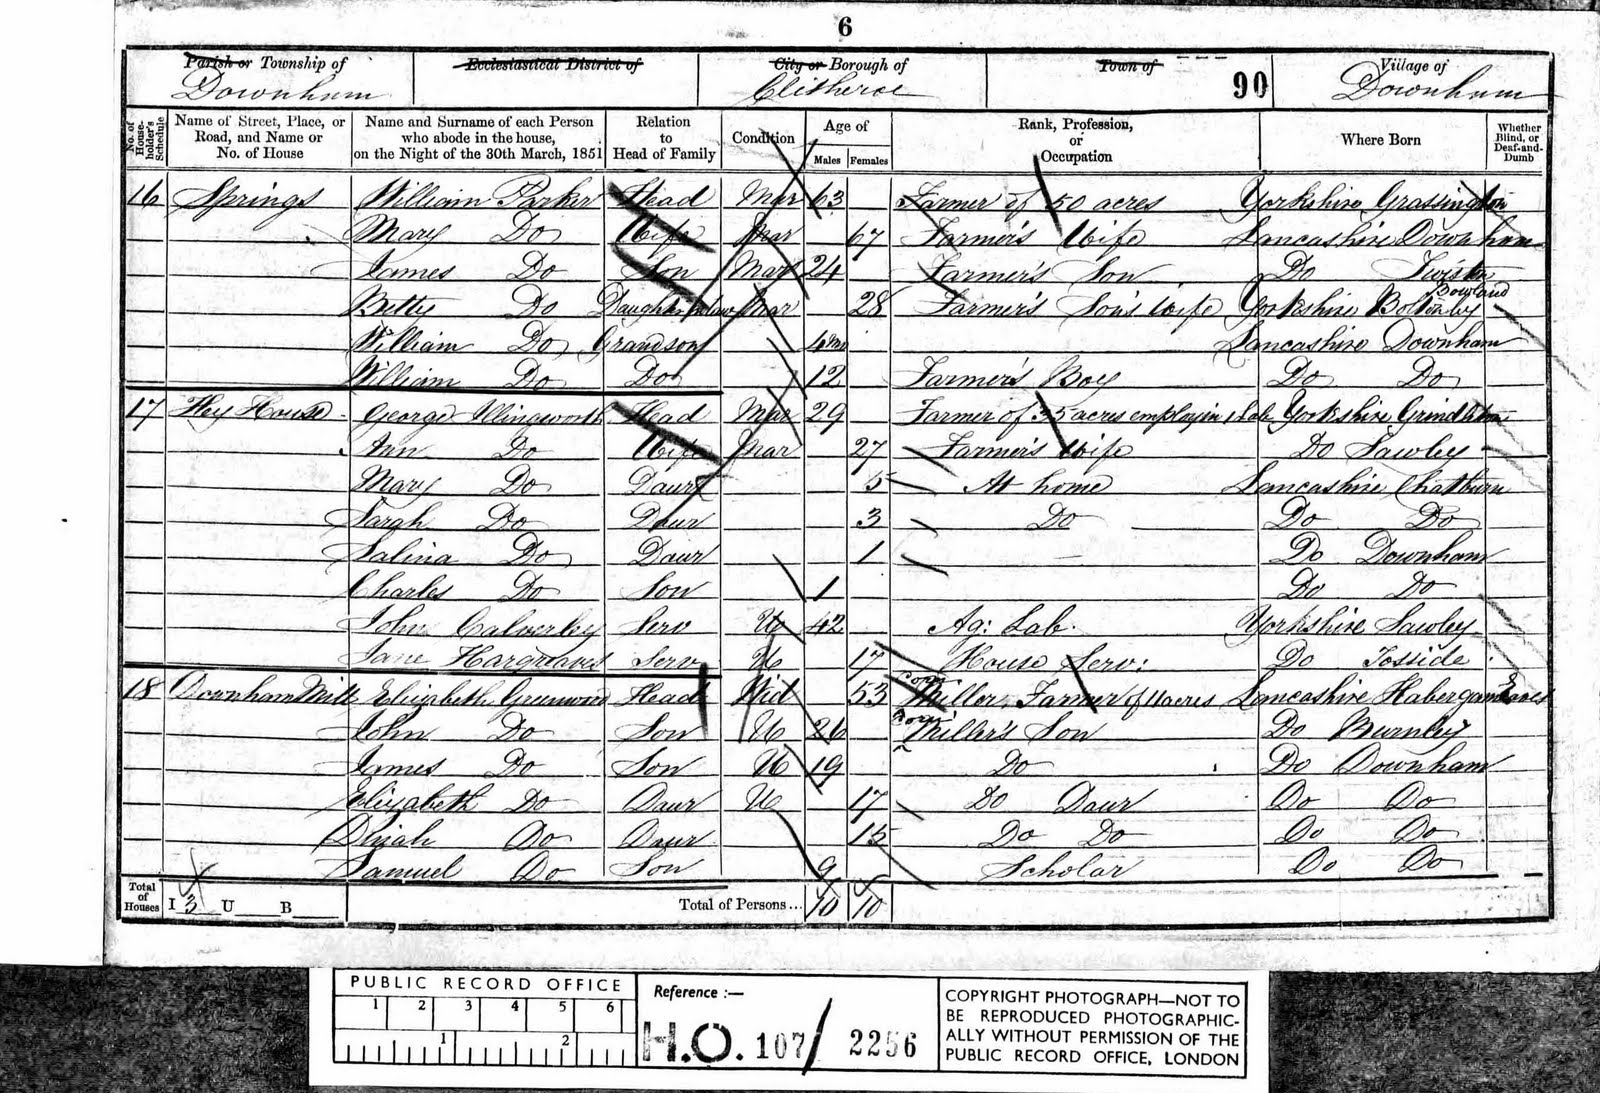 6
Parish or Township of Ecclesiastical District of City or Borough of Town of Village of
Downham Clitheroe 90 Downham
No. of House-holder's Schedule Name of Street, Place, or Road, and Name or No. of House Name and Surname of each Person who abode in the house, on the Night of the 30th March, 1851 Relation to Head of Family Condition Age of Males Females Rank, Profession, or Occupation Where Born Whether Blind, or Deaf-and-Dumb
16 Springs William Parker Head Mar 63 Farmer of 50 acres Yorkshire Grassington
Mary Do Wife Mar 67 Farmer's Wife Lancashire Downham
James Do Son Mar 24 Farmer's Son Do Twiston
Betty Do Daughter in law Mar 28 Farmer's Son's Wife Yorkshire Bolton by Bowland
William Do Grandson 4m Lancashire Downham
William Do Do 12 Farmer's Boy Do Do
17 Hey House George Illingworth Head Mar 29 Farmer of 35 acres employin 1 Lab Yorkshire Grindleton
Ann Do Wife Mar 27 Farmer's Wife Do Sawley
Mary Do Daur 5 At home Lancashire Chatburn
Sarah Do Daur 3 Do Do Do
Salina Do Daur 1 Do Downham
Charles Do Son 1 Do Do
John Calverley Serv U 42 Ag: Lab. Yorkshire Sawley
Jane Hargreaves Serv U 17 House Serv: Do Tosside
18 Downham Mill Elizabeth Greenwood Head Wid 53 Corn Miller, Farmer of 11 acres Lancashire Habergam Eaves
John Do Son U 26 Corn Miller's Son Do Burnley
James Do Son U 19 Do Do Downham
Elizabeth Do Daur U 17 Do Daur Do Do
Do Daur 15 Do Do Do Do
Samuel Do Son 9 Scholar Do Do
Total of Houses I 3 U B Total of Persons... 10 10
PUBLIC RECORD OFFICE
1 2 3 4 5 6
1 2
Reference :—
H.O. 107/ 2256
COPYRIGHT PHOTOGRAPH—NOT TO
BE REPRODUCED PHOTOGRAPHIC-
ALLY WITHOUT PERMISSION OF THE
PUBLIC RECORD OFFICE, LONDON